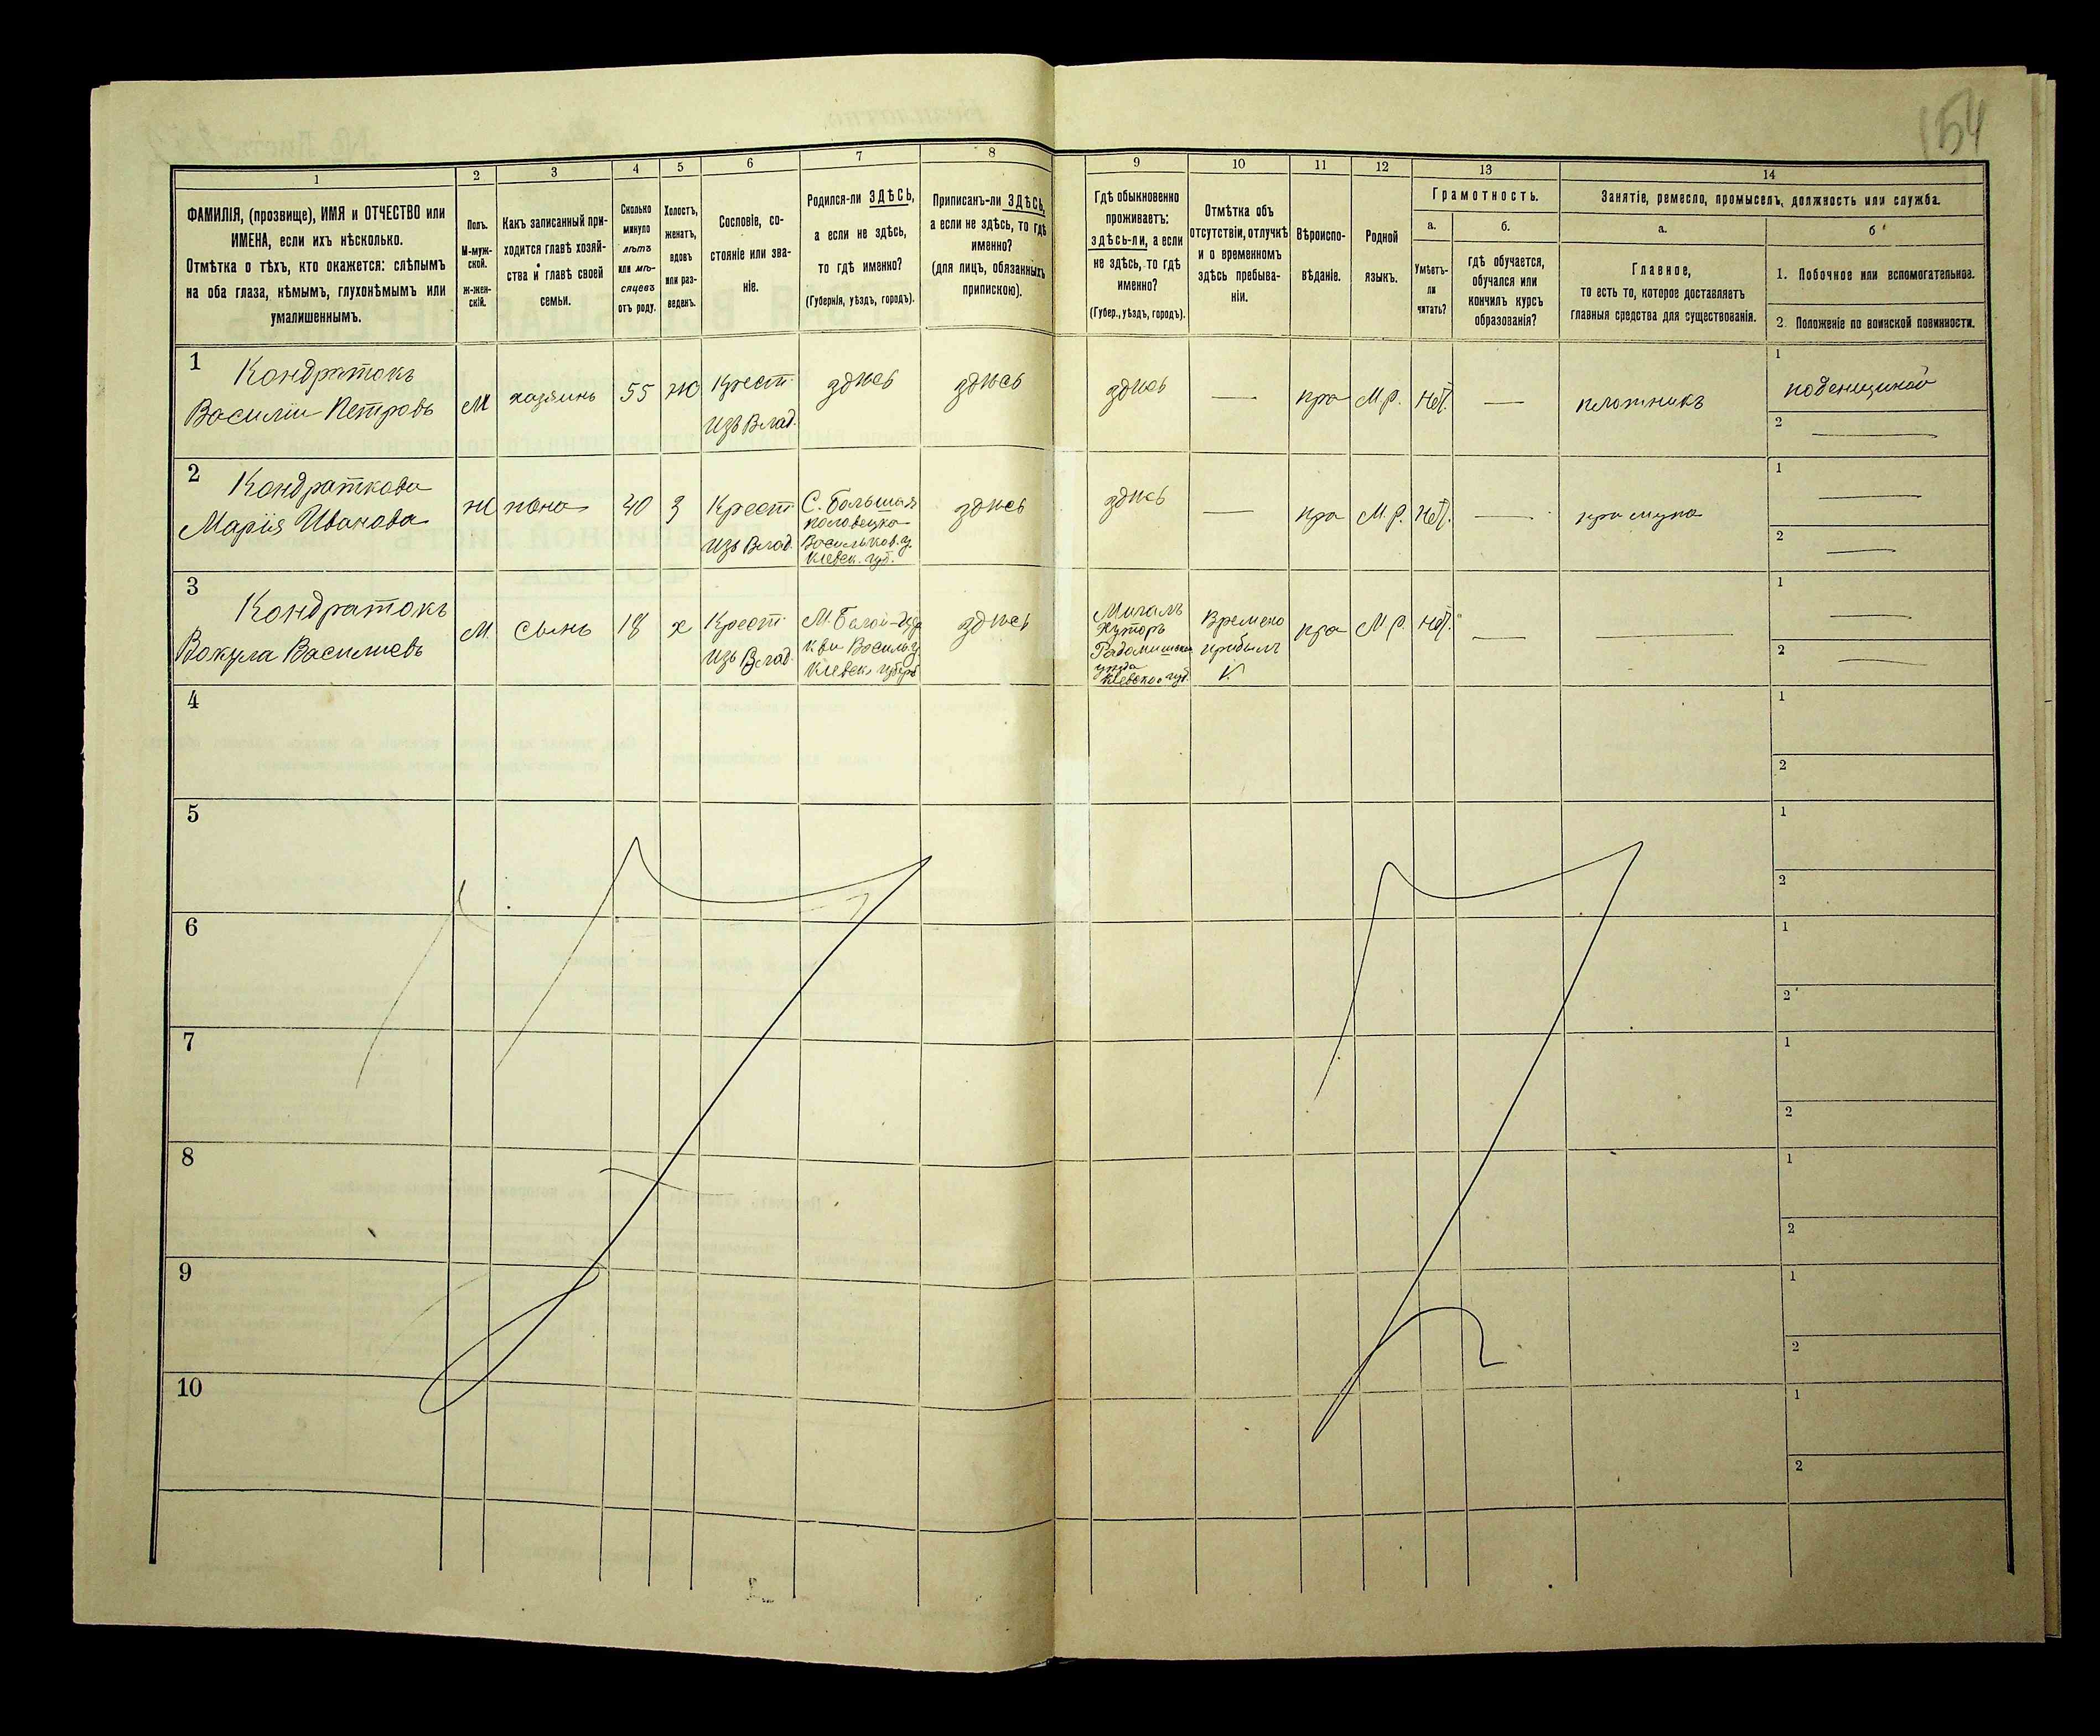 154
1
2
3
4
5
6
7
8
9
10
11
12
13
14
ФАМИЛІЯ, (прозвище), ИМЯ и ОТЧЕСТВО или
ИМЕНА, если ихъ нѣсколько.
Отмѣтка о тѣхъ, кто окажется: слѣпымъ
на оба глаза, нѣмымъ, глухонѣмымъ или
умалишеннымъ.
Полъ.
М-муж-
ской.
Ж-жен-
скій.
Какъ записанный при-
ходится главѣ хозяй-
ства и главѣ своей
семьи.
Сколько
минуло
лѣтъ
или мѣ-
сяцевъ
отъ роду.
Холостъ,
женатъ,
вдовъ
или раз-
веденъ.
Сословіе, со-
стояніе или зва-
ніе.
Родился-ли ЗДѢСЬ,
а если не здѣсь,
то гдѣ именно?
(Губернія, уѣздъ, городъ).
Приписанъ-ли ЗДѢСЬ,
а если не здѣсь, то гдѣ
именно?
(для лицъ, обязанныхъ
припискою).
Гдѣ обыкновенно
проживаетъ:
здѣсь-ли, а если
не здѣсь, то гдѣ
именно?
(Губер., уѣздъ, городъ).
Отмѣтка объ
отсутствіи, отлучкѣ
и о временномъ
здѣсь пребыва-
ніи.
Вѣроиспо-
вѣданіе.
Родной
языкъ.
Грамотность.
а.
Умѣетъ-
ли
читать?
б.
гдѣ обучается,
обучался или
кончилъ курсъ
образованія?
Занятіе, ремесло, промыселъ, должность или служба.
а.
Главное,
то есть то, которое доставляетъ
главныя средства для существованія.
б
1. Побочное или вспомогательное.
2. Положеніе по воинской повинности.
1
Кондратокъ
Василій Петровъ
М
хозяинъ
55
ж
Крест.
изъ Влад.
здѣсь
здѣсь
здѣсь
—
пра
М.р.
Нѣт.
—
плотникъ
1
поденщикой
2
—
2
Кондраткова
Марія Иванова
Ж
жена
40
З
Крест.
изъ Влад.
С. Большая
Половецка
Васильков. у.
Кіевск. губ.
здѣсь
здѣсь
—
пра
М.р.
Нѣт.
—
при мужа
1
—
2
—
3
Кондратокъ
Вакула Василіевъ
М.
Сынъ
18
х
Крест.
изъ Влад.
здѣсь
Хуторъ
Радомышски
уѣзда
Кіевской губ.
Времено
прибылъ
пра
М.р.
Нѣт.
—
—
1
—
2
—
4
1
2
5
1
2
6
1
2
7
1
2
8
1
2
9
1
2
10
1
2